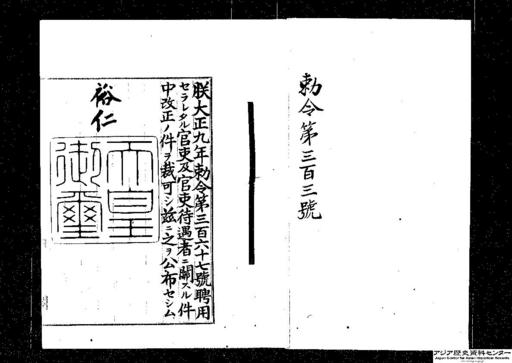 勅令第三百三號
朕大正九年勅令第三百六十七號聘用
セラレタル官吏及官吏待遇者ニ關スル件
中改正ノ件ヲ裁可シ茲ニ之ヲ公布セシム
裕仁
天皇
御璽
アジア歴史資料センター
Japan Center for Asian Historical Records